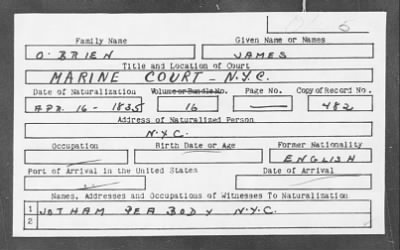 Family Name Given Name or Names
O'BRIEN JAMES
Title and Location of Court
MARINE COURT - N.Y.C.
Date of Naturalization Volume or Bundle No. Page No. Copy of Record No.
APR. 16 - 1835 16 — 482
Address of Naturalized Person
N.Y.C.
Occupation Birth Date or Age Former Nationality
ENGLISH
Port of Arrival in the United States Date of Arrival
Names, Addresses and Occupations of Witnesses To Naturalization
1 JOTHAM PEABODY N.Y.C.
2